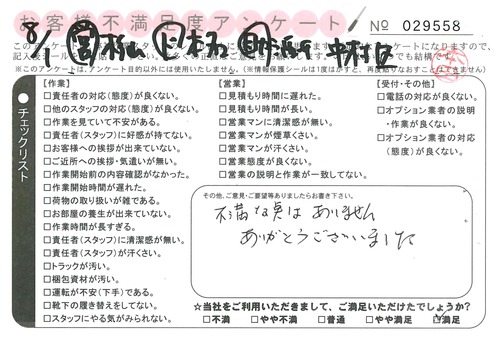 お客様不満足度アンケート
№ 029558
8/1 中村区
※このアンケートは、アンケート目的以外には使用いたしません。(※情報保護シールは1度はがすと、再度貼りなおすことはできません)
チェックリスト
【作業】
□責任者の対応(態度)が良くない。
□他のスタッフの対応(態度)が良くない。
□作業を見ていて不安がある。
□責任者(スタッフ)に好感が持てない。
□お客様への挨拶が出来ていない。
□ご近所への挨拶・気遣いが無い。
□作業開始前の内容確認がなかった。
□作業開始時間が遅れた。
□荷物の取り扱いが雑である。
□お部屋の養生が出来ていない。
□作業時間が長すぎる。
□責任者(スタッフ)に清潔感が無い。
□責任者(スタッフ)が汗くさい。
□トラックが汚い。
□梱包資材が汚い。
□運転が不安(下手)である。
□靴下の履き替えをしてない。
□スタッフにやる気がみられない。
【営業】
□見積もり時間に遅れた。
□見積もり時間が長い。
□営業マンに清潔感が無い。
□営業マンが煙草くさい。
□営業マンが汗くさい。
□営業態度が良くない。
□営業の説明と作業が一致してない。
【受付・その他】
□電話の対応が良くない。
□オプション業者の説明
・作業が良くない。
□オプション業者の対応
(態度)が良くない。
その他、ご意見・ご要望等ありましたらお書き下さい。
不満な点はありません
ありがとうございました
☆当社をご利用いただきまして、ご満足いただけたでしょうか?
□不満 □やや不満 □普通 □やや満足 ☑満足